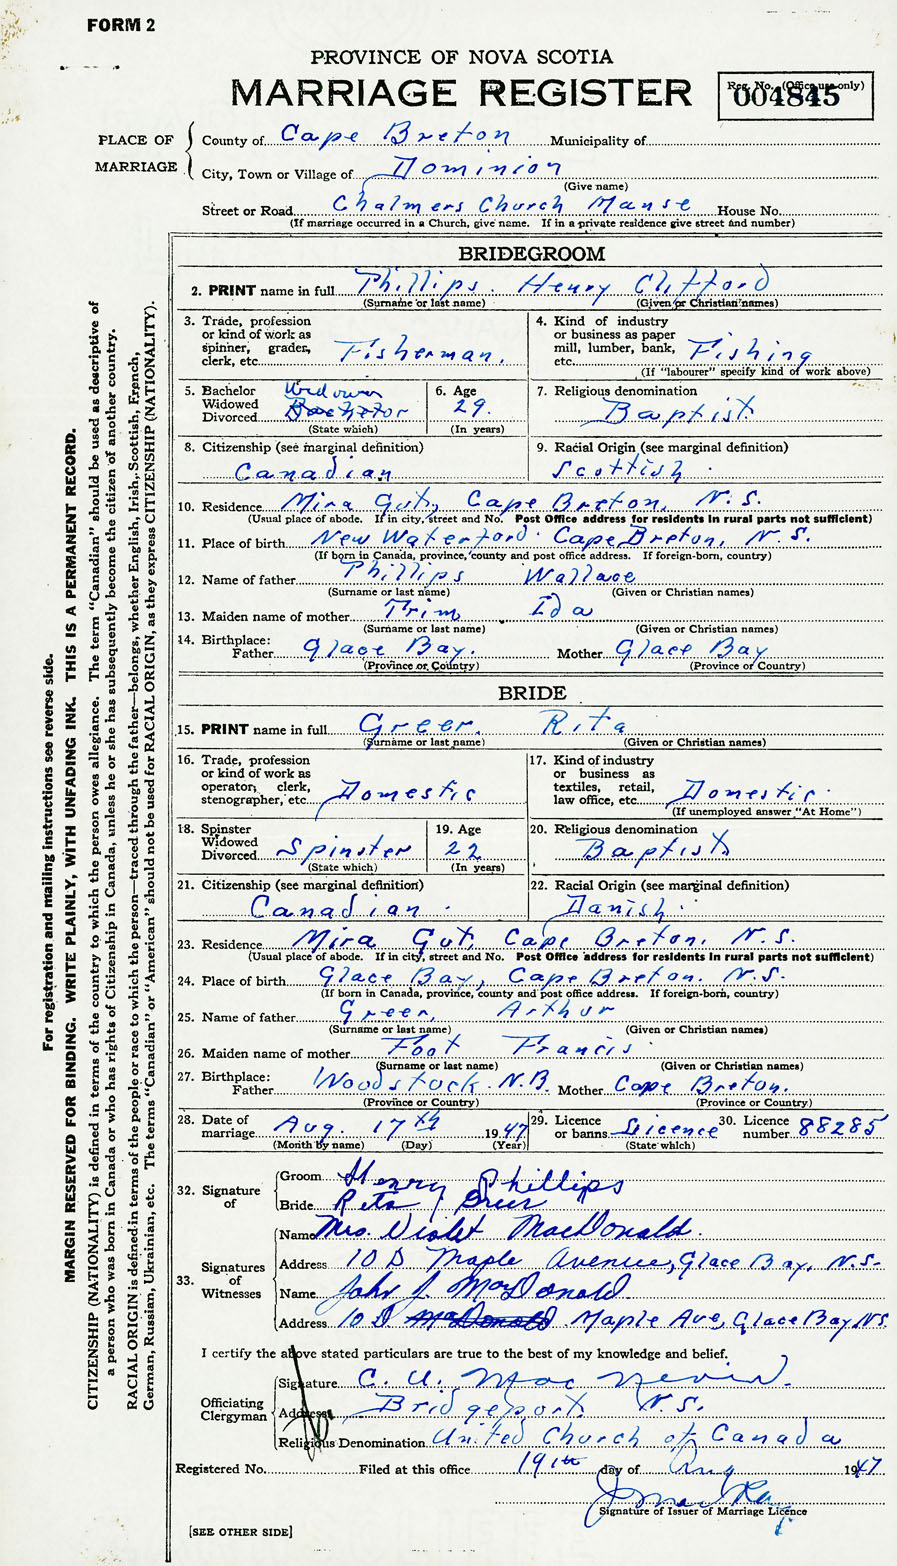 FORM 2
PROVINCE OF NOVA SCOTIA
MARRIAGE REGISTER
Reg. No. (Office use only)
004845
PLACE OF MARRIAGE
County of Cape Breton Municipality of
City, Town or Village of Dominion
(Give name)
Street or Road Chalmers Church Manse House No.
(If marriage occurred in a Church, give name. If in a private residence give street and number)
BRIDEGROOM
2. PRINT name in full Phillips. Henry Clifford
(Surname or last name) (Given or Christian names)
3. Trade, profession or kind of work as spinner, grader, clerk, etc. Fisherman.
4. Kind of industry or business as paper mill, lumber, bank, etc. Fishing
(If "labourer" specify kind of work above)
5. Bachelor Widowed Divorced Widower Bachelor
(State which)
6. Age 29.
(In years)
7. Religious denomination Baptist.
8. Citizenship (see marginal definition) Canadian
9. Racial Origin (see marginal definition) Scottish.
10. Residence Mira Gut, Cape Breton, N.S.
(Usual place of abode. If in city, street and No. Post Office address for residents in rural parts not sufficient)
11. Place of birth New Waterford. Cape Breton, N.S.
(If born in Canada, province, county and post office address. If foreign-born, country)
12. Name of father Phillips Wallace
(Surname or last name) (Given or Christian names)
13. Maiden name of mother Trim Ida
(Surname or last name) (Given or Christian names)
14. Birthplace: Father Glace Bay. Mother Glace Bay
(Province or Country) (Province or Country)
BRIDE
15. PRINT name in full Greer. Rita
(Surname or last name) (Given or Christian names)
16. Trade, profession or kind of work as operator, clerk, stenographer, etc. Domestic
17. Kind of industry or business as textiles, retail, law office, etc. Domestic.
(If unemployed answer "At Home")
18. Spinster Widowed Divorced Spinster
(State which)
19. Age 22
(In years)
20. Religious denomination Baptist
21. Citizenship (see marginal definition) Canadian.
22. Racial Origin (see marginal definition) Danish.
23. Residence Mira Gut, Cape Breton, N.S.
(Usual place of abode. If in city, street and No. Post Office address for residents in rural parts not sufficient)
24. Place of birth Glace Bay, Cape Breton. N.S.
(If born in Canada, province, county and post office address. If foreign-born, country)
25. Name of father Greer, Arthur
(Surname or last name) (Given or Christian names)
26. Maiden name of mother Foot Francis.
(Surname or last name) (Given or Christian names)
27. Birthplace: Father Woodstock. N.B. Mother Cape Breton.
(Province or Country) (Province or Country)
28. Date of marriage Aug. 17th 1947
(Month by name) (Day) (Year)
29. Licence or banns Licence
(State which)
30. Licence number 88285
32. Signature of
Groom Henry Phillips
Bride Rita Greer
33. Signatures of Witnesses
Name Mrs. Violet MacDonald.
Address 10 D Maple Avenue, Glace Bay, N.S.
Name John J. MacDonald
Address 10 D MacDonald Maple Ave, Glace Bay, N.S.
I certify the above stated particulars are true to the best of my knowledge and belief.
Officiating Clergyman
Signature C. U. MacNevin.
Address Bridgeport. N.S.
Religious Denomination United Church of Canada
Registered No. Filed at this office 19th day of Aug 1947
Signature of Issuer of Marriage Licence
[SEE OTHER SIDE]
For registration and mailing instructions see reverse side.
MARGIN RESERVED FOR BINDING. WRITE PLAINLY, WITH UNFADING INK. THIS IS A PERMANENT RECORD.
CITIZENSHIP (NATIONALITY) is defined in terms of the country to which the person owes allegiance. The term "Canadian" should be used as descriptive of
a person who was born in Canada or who has rights of Citizenship in Canada, unless he or she has subsequently become the citizen of another country.
RACIAL ORIGIN is defined in terms of the people or race to which the person—traced through the father—belongs, whether English, Irish, Scottish, French,
German, Russian, Ukrainian, etc. The terms "Canadian" or "American" should not be used for RACIAL ORIGIN, as they express CITIZENSHIP (NATIONALITY).